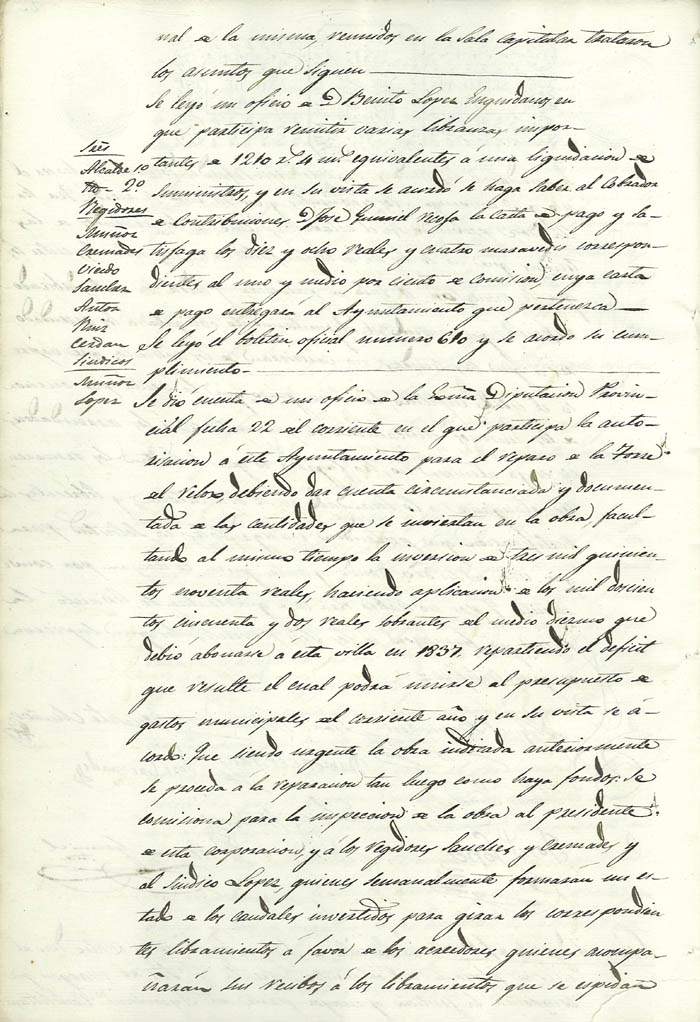 nal de la misma, reunidos en la Sala Capitular trataron
los asuntos que siguen
Se leyó un oficio de D Benito Lopez Enguidanos en
que participa remitir varias libranzas impor-
tantes de 1210 rs. 4 ms. equivalentes á una liquidacion de
suministros, y en su vista se acordó se haga saber al Cobrador
de Contribuciones D Jose Gumiel recoja la carta de pago y sa-
tisfaga los diez y ocho reales y cuatro maravedis correspon-
dientes al uno y medio por ciento de comision, cuya carta
de pago entregará al Ayuntamiento que pertenezca
Se leyó el boletin oficial numero 610 y se acordo su cum-
plimiento.
Se dió cuenta de un oficio de la Exma Diputacion Provin-
cial fecha 22 del corriente en el que participa la auto-
rizacion á este Ayuntamiento para el reparo de la Torre
del Relox debiendo dar cuenta circunstanciada y documen-
tada de las cantidades que se inviertan en la obra, facul-
tando al mismo tiempo la inversion de tres mil quinien-
tos noventa reales, haciendo aplicacion de los mil docien
tos cincuenta y dos reales sobrantes del medio diezmo que
debió abonarse á esta villa en 1837 repartiendo el deficit
que resulte el cual podrá unirse al presupuesto de
gastos municipales del corriente año y en su vista se á-
cordo: Que siendo urgente la obra indicada anteriormente
se proceda á la reparacion tan luego como haya fondos: Se
comisiona para la inspeccion de la obra al presidente
de esta corporacion, y á los regidores Sanchez y Cremades y
al Sindico Lopez, quienes semanalmente formarán un es-
tado de los caudales invertidos para girar los correspondien
tes libramientos á favor de los acreedores quienes acompa-
ñarán sus recibos á los libramientos que se espidan
Sres
Alcalde 1o
Yd - 2o
Regidores
Muñoz
Cremades
Oviedo
Sanchez
Anton
Ruiz
Cerdan
Sindicos
Muñoz
Lopez